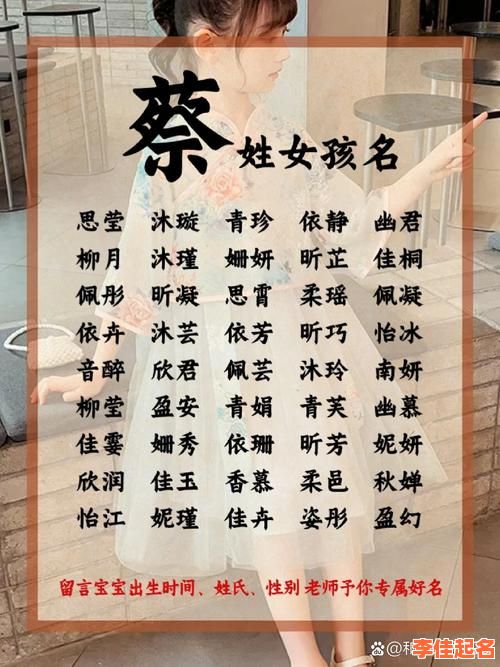 蔡 姓女孩名
思莹 沐璇 青珍 依静 幽君
柳月 沐瑾 姗妍 昕芷 佳桐
佩彤 昕凝 思霄 柔瑶 佩凝
依卉 沐芸 依芳 昕巧 怡冰
音醉 欣君 佩芸 沐玲 南妍
柳莹 盈安 青娟 青芙 幽慕
佳霎 姗秀 依珊 昕芳 妮妍
欣润 佳玉 香慕 柔邑 秋婵
怡江 妮瑾 佳卉 姿彤 盈幻
留言宝宝出生时间、姓氏、性别 老师予你专属好名
李佳起名